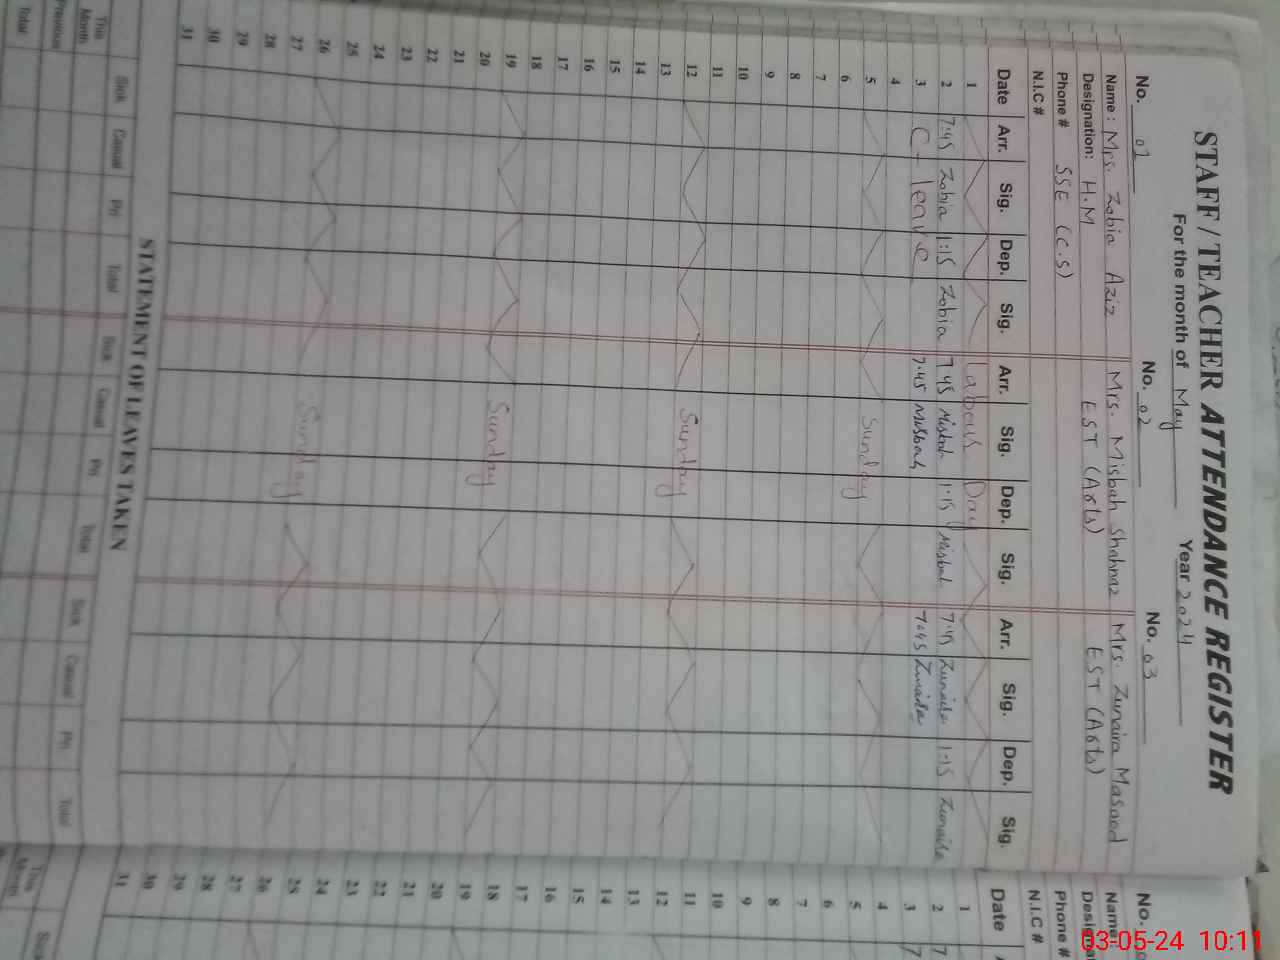 STAFF / TEACHER ATTENDANCE REGISTER
For the month of May Year 2024
No. 01 No. 02 No. 03
Name: Mrs. Zobia Aziz Mrs. Misbah Shahnaz Mrs. Zunaira Masood
Designation: H.M EST (Arts) EST (Arts)
Phone # SSE (C.S)
N.I.C #
Date Arr. Sig. Dep. Sig. Arr. Sig. Dep. Sig. Arr. Sig. Dep. Sig.
1 Labour Day
2 7:45 Zobia 1:15 Zobia 7:45 Misbah 1:15 Misbah 7:45 Zunaira 1:15 Zunaira
3 C- leave 7:45 Misbah 7:45 Zunaira
4
5 Sunday
6
7
8
9
10
11
12 Sunday
13
14
15
16
17
18
19 Sunday
20
21
22
23
24
25
26 Sunday
27
28
29
30
31
STATEMENT OF LEAVES TAKEN
Sick Casual Pri Total Sick Casual Pri Total Sick Casual Pri Total
This Month
Previous
Total
No.
Name
Phone #
N.I.C #
Date
1
2 7
3 7
4
5
6
7
8
9
10
11
12
13
14
15
16
17
18
19
20
21
22
23
24
25
26
27
28
29
30
31
This Month
03-05-24 10:11